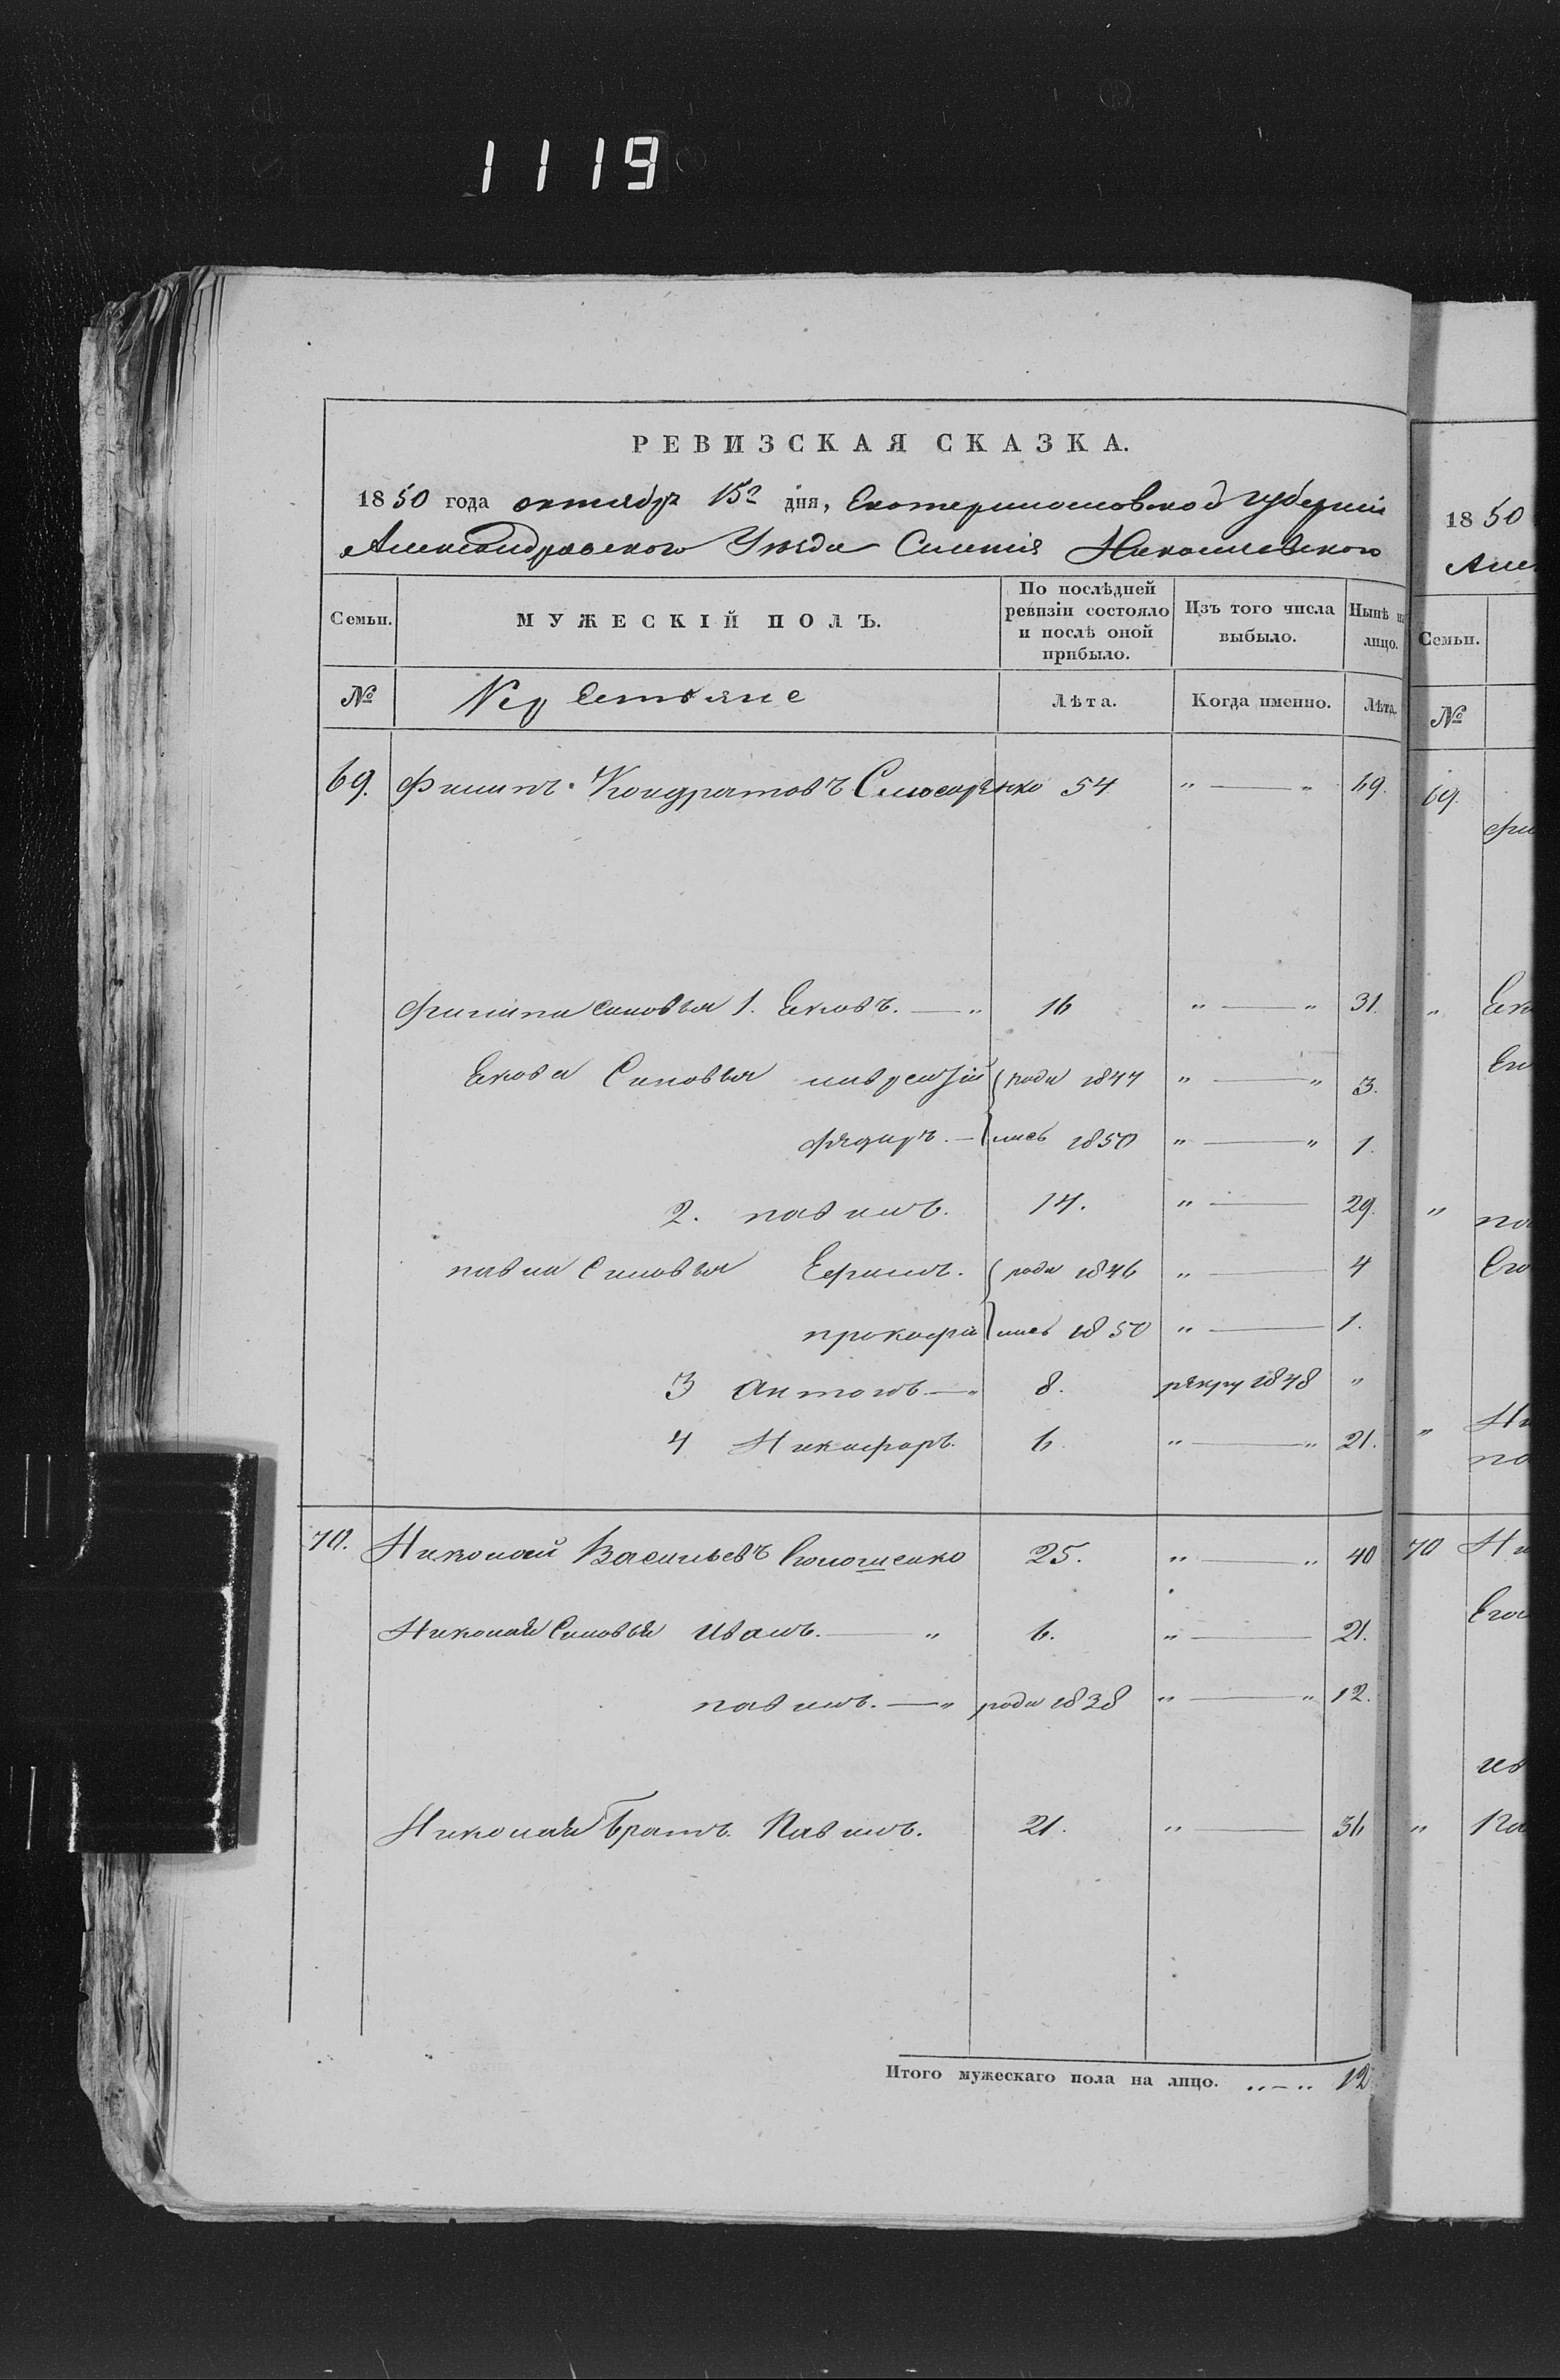 1119
РЕВИЗСКАЯ СКАЗКА.
1850 года октябр 15го дня, Екатеринославской губерніи
Александровского Уезда Селенія Николаевского
Семьи. МУЖЕСКІЙ ПОЛЪ. По послѣдней ревизіи состояло и послѣ оной прибыло. Изъ того числа выбыло. Нынѣ на лицо.
№ Лѣта. Когда именно. Лѣта.
69. Филипъ Кондратовъ Слюсаренко 54 " — " 69.
Филипа Сыновья 1. Ековъ. — " 16 " — " 31.
Екова Сыновья лаврентій роди 1847 " — " 3.
Федиръ. — лись 1850 " — " 1.
2. павилъ. 14. " — 29.
павла Сыновья Ефимъ. роди 1846 " — 4
прокофи лись 1850 " — 1.
3 Антонъ — " 8. рекру 1848 "
4 Никифоръ. 6. " — " 21.
70. Николай Васильевъ 25. " — " 40
Николая Сыновья Иванъ. — " 6. " — 21.
павилъ. — " роди 1838 " — " 12.
Николая братъ. Павилъ. 21. " — 36
Итого мужескаго пола на лицо. " — " 12
1850
Але
Семьи.
№
69.
фи
" Еко
Ек
" па
Его
" Ни
па
70 Ни
Его
ив
" Па